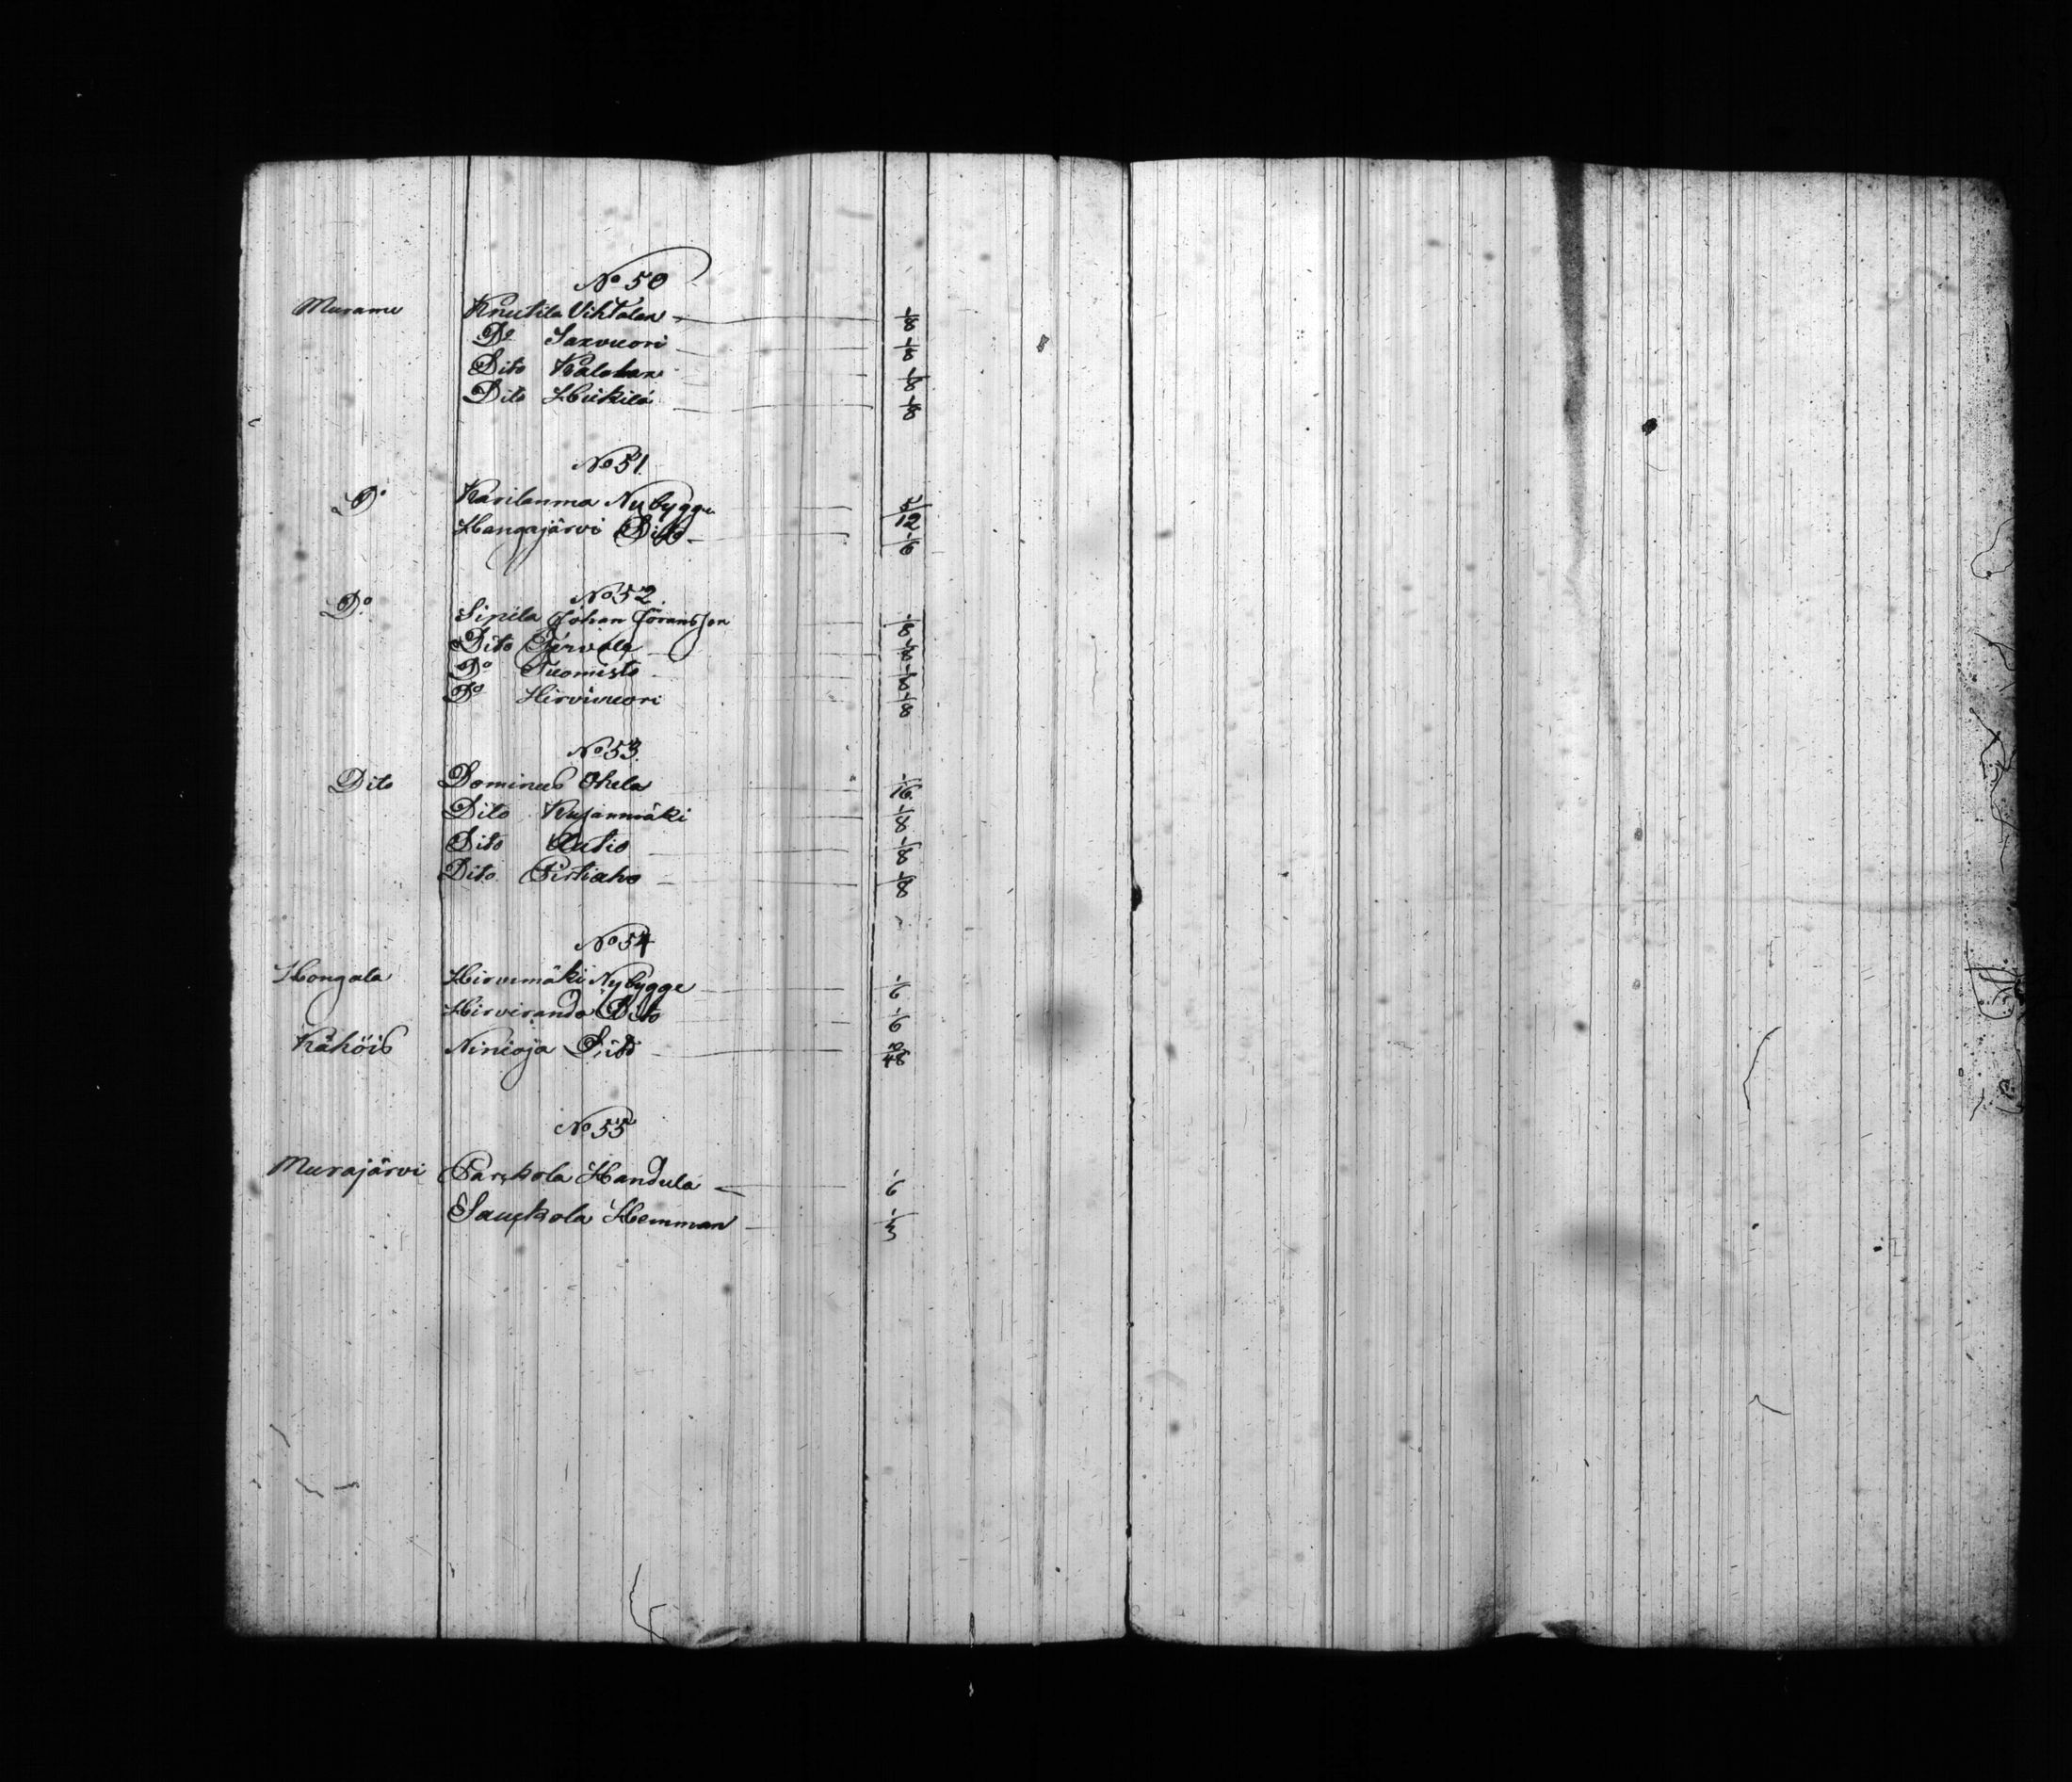 No 50
Murame Knutila Vihtalan 1/8
Do Saxvuori 1/8
Dito Kalohan 1/8
Dito Heikilä 1/8
No 51.
Do Karilanma Nybygge 5/12
Hangajärvi Dito 1/6
No 52.
Do Sipila Johan Jöransson 1/8
Dito Tervala 1/8
Do Tuomisto 1/8
Do Hirvivuori 1/8
No 53.
Dito Dominus Ohela 1/16
Dito Kujanmäki 1/8
Dito Autio 1/8
Dito Pirtiaho 1/8
No 54
Hongala Hirvimäki Nybygge 1/6
Hirviranda Dito 1/6
Kähöis Ninioja Dito 5/48
No 55
Murajärvi Parckola Handula 1/6
Sauckola Hemman 1/3